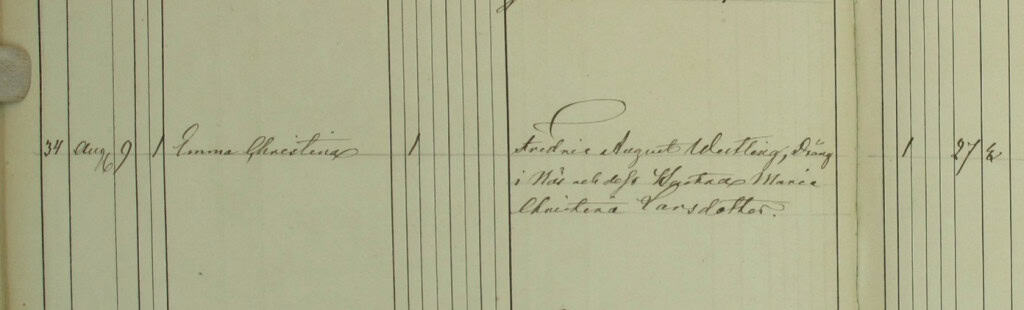 34 Aug 6 9 1 Emma Christina 1 Fredric August Westling, Dräng 1 27
i Näs och dess Hustru Maria
Christina Larsdotter.